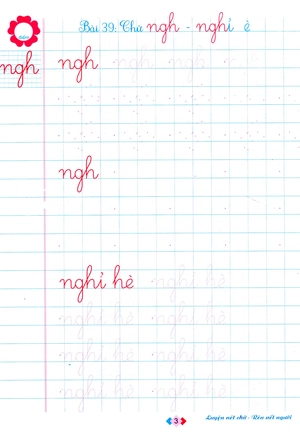 Bài 39: Chữ ngh - nghỉ è
ngh
ngh ngh ngh ngh ngh
ngh
nghỉ hè nghỉ hè
nghỉ hè nghỉ hè
nghỉ hè nghỉ hè
nghỉ hè nghỉ hè
nghỉ hè nghỉ hè
3
Luyện nét chữ - Rèn nết người